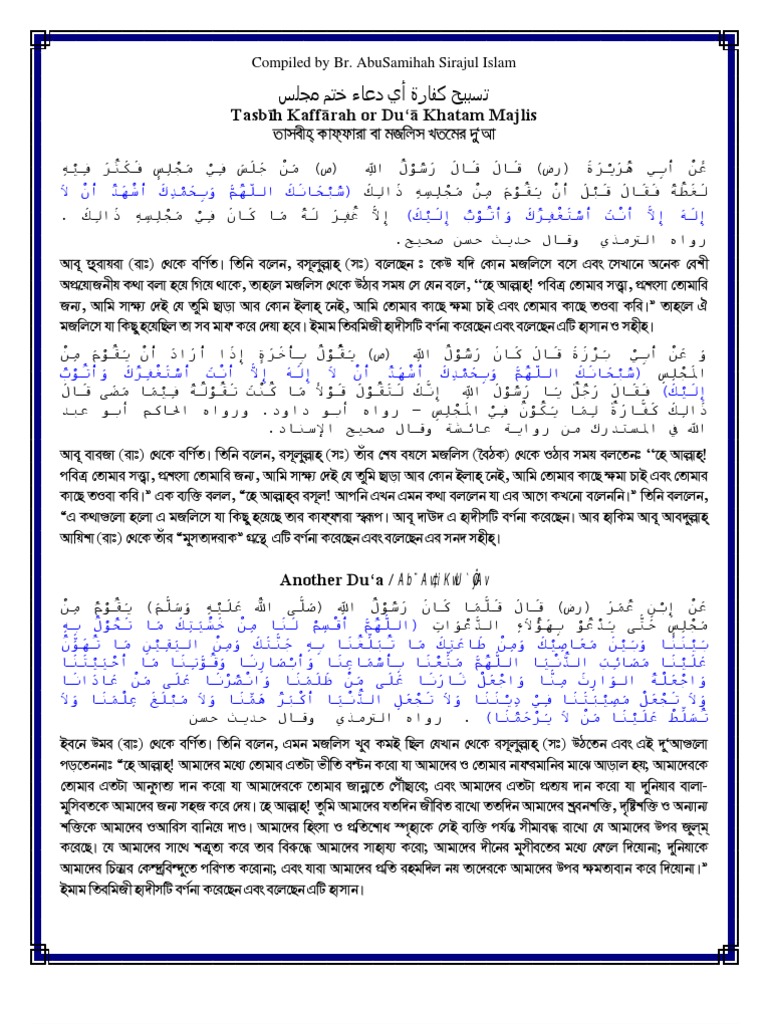 Compiled by Br. AbuSamihah Sirajul Islam
تسبيح كفارة أي دعاء ختم مجلس
Tasbīh Kaffārah or Du‘ā Khatam Majlis
তাসবীহ্ কাফ্ফারা বা মজলিস খতমের দু‘আ
عَنْ أَبِي هُرَيْرَةَ (رض) قَالَ قَالَ رَسُوْلُ اللهِ (ص) مَنْ جَلَسَ فِيْ مَجْلِسٍ فَكَثُرَ فِيْهِ
لَغَطُهُ فَقَالَ قَبْلَ أَنْ يَقُوْمَ مِنْ مَجْلِسِهِ ذَالِكَ (سُبْحَانَكَ اللَّهُمَّ وَبِحَمْدِكَ أَشْهَدُ أَنْ لاَ
إِلَهَ إِلاَّ أَنْتَ أَسْتَغْفِرُكَ وَأَتُوْبُ إِلَيْكَ) إِلاَّ غُفِرَ لَهُ مَا كَانَ فِيْ مَجْلِسِهِ ذَالِكَ .
رواه الترمذي وقال حديث حسن صحيح.
আবূ হুরায়রা (রাঃ) থেকে বর্ণিত। তিনি বলেন, রসূলুল্লাহ্ (সঃ) বলেছেন ঃ কেউ যদি কোন মজলিসে বসে এবং সেখানে অনেক বেশী
অপ্রয়োজনীয় কথা বলা হয়ে গিয়ে থাকে, তাহলে মজলিস থেকে উঠার সময় সে যেন বলে, “হে আল্লাহ্! পবিত্র তোমার সত্ত্বা, প্রশংসা তোমারি
জন্য, আমি সাক্ষ্য দেই যে তুমি ছাড়া আর কোন ইলাহ্ নেই, আমি তোমার কাছে ক্ষমা চাই এবং তোমার কাছে তওবা করি।” তাহলে ঐ
মজলিসে যা কিছু হয়েছিল তা সব মাফ করে দেয়া হবে। ইমাম তিরমিজী হাদীসটি বর্ণনা করেছেন এবং বলেছেন এটি হাসান ও সহীহ্।
وَ عَنْ أَبِيْ بَرْزَةَ قَالَ كَانَ رَسُوْلُ اللهِ (ص) يَقُوْلُ بِأَخَرَةٍ إِذَا أَرَادَ أَنْ يَقُوْمَ مِنْ
الْمَجْلِسِ (سُبْحَانَكَ اللَّهُمَّ وَبِحَمْدِكَ أَشْهَدُ أَنْ لاَ إِلَهَ إِلاَّ أَنْتَ أَسْتَغْفِرُكَ وَأَتُوْبُ
إِلَيْكَ) فَقَالَ رَجُلٌ يَا رَسُوْلَ اللهِ إِنَّكَ لَتَقُوْلَ قَوْلاً مَا كُنْتَ تَقُوْلُهُ فِيْمَا مَضَى قَالَ
ذَالِكَ كَفَّارَةٌ لِمَا يَكُوْنُ فِيْ الْمَجْلِسِ – رواه أبو داود. ورواه الحاكم أبو عبد
الله في المستدرك من رواية عائشة وقال صحيح الإسناد.
আবূ বারজা (রাঃ) থেকে বর্ণিত। তিনি বলেন, রসূলুল্লাহ্ (সঃ) তাঁর শেষ বয়সে মজলিস (বৈঠক) থেকে ওঠার সময় বলতেনঃ “হে আল্লাহ্!
পবিত্র তোমার সত্ত্বা, প্রশংসা তোমারি জন্য, আমি সাক্ষ্য দেই যে তুমি ছাড়া আর কোন ইলাহ্ নেই, আমি তোমার কাছে ক্ষমা চাই এবং তোমার
কাছে তওবা করি।” এক ব্যক্তি বলল, “হে আল্লাহ্‌র রসূল! আপনি এখন এমন কথা বললেন যা এর আগে কখনো বলেননি।” তিনি বললেন,
“এ কথাগুলো হলো এ মজলিসে যা কিছু হয়েছে তার কাফ্ফারা স্বরূপ। আবূ দাউদ এ হাদীসটি বর্ণনা করেছেন। আর হাকিম আবূ আবদুল্লাহ্
আয়িশা (রাঃ) থেকে তাঁর “মুসতাদরাক” গ্রন্থে এটি বর্ণনা করেছেন এবং বলেছেন এর সনদ সহীহ্।
Another Du‘a /
عَنْ إِبْنِ عُمَرَ (رض) قَالَ قَلَّمَا كَانَ رَسُوْلُ اللهِ (صَلَّى اللهُ عَلَيْهِ وَسَلَّمَ) يَقُوْمُ مِنْ
مَجْلِسٍ حَتَّى يَدْعُوْ بِهَؤُلاَءِ الدَّعْوَاتِ (اللَّهُمَّ أَقْسِمْ لَنَا مِنْ خَشْيَتِكَ مَا تَحُوْلُ بِهِ
بَيْنَنَا وَبَيْنَ مَعَاصِيْكَ وَمِنْ طَاعَتِكَ مَا تُبَلِّغُنَا بِهِ جَنَّتَكَ وَمِنَ الْيَقِيْنِ مَا تُهَوِّنُ
عَلَيْنَا مَصَائِبَ الدُّنْيَا اللَّهُمَّ مَتِّعْنَا بِأَسْمَاعِنَا وَأَبْصَارِنَا وَقُوَّتِنَا مَا أَحْيَيْتَنَا
وَاجْعَلْهُ الوَارِثَ مِنَّا وَاجْعَلْ ثَأْرَنَا عَلَى مَنْ ظَلَمَنَا وَانْصُرْنَا عَلَى مَنْ عَادَانَا
وَلاَ تَجْعَلْ مُصِيْبَتَنَا فِيْ دِيْنِنَا وَلاَ تَجْعَلِ الدُّنْيَا أَكْبَرَ هَمِّنَا وَلاَ مَبْلَغَ عِلْمِنَا وَلاَ
تُسَلِّطْ عَلَيْنَا مَنْ لاَ يَرْحَمُنَا) . رواه الترمذي وقال حديث حسن
ইবনে উমর (রাঃ) থেকে বর্ণিত। তিনি বলেন, এমন মজলিস খুব কমই ছিল যেখান থেকে রসূলুল্লাহ্ (সঃ) উঠতেন এবং এই দু‘আগুলো
পড়তেননাঃ “হে আল্লাহ্! আমাদের মধ্যে তোমার এতটা ভীতি বন্টন করো যা আমাদের ও তোমার নাফরমানির মাঝে আড়াল হয়; আমাদেরকে
তোমার এতটা আনুগত্য দান করো যা আমাদেরকে তোমার জান্নাতে পৌঁছাবে; এবং আমাদের এতটা প্রত্যয় দান করো যা দুনিয়ার বালা-
মুসিবতকে আমাদের জন্য সহজ করে দেয়। হে আল্লাহ্! তুমি আমাদের যতদিন জীবিত রাখো ততদিন আমাদের শ্রবনশক্তি, দৃষ্টিশক্তি ও অন্যান্য
শক্তিকে আমাদের ওআরিস বানিয়ে দাও। আমাদের হিংসা ও প্রতিশোধ স্পৃহাকে সেই ব্যক্তি পর্যন্ত সীমাবদ্ধ রাখো যে আমাদের উপর জুল্‌ম্
করেছে। যে আমাদের সাথে শত্রুতা করে তার বিরুদ্ধে আমাদের সাহায্য করো; আমাদের দীনের মুসীবতের মধ্যে ফেলে দিয়োনা; দুনিয়াকে
আমাদের চিন্তার কেন্দ্রবিন্দুতে পরিণত করোনা; এবং যারা আমাদের প্রতি রহমদিল নয় তাদেরকে আমাদের উপর ক্ষমতাবান করে দিয়োনা।”
ইমাম তিরমিজী হাদীসটি বর্ণনা করেছেন এবং বলেছেন এটি হাসান।